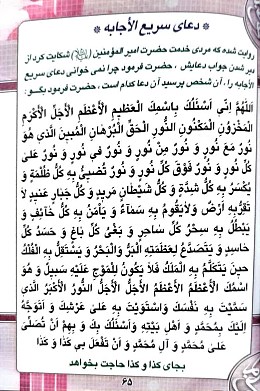 دعای سریع الأجابه
روایت شده که مردی خدمت حضرت امیر المؤمنین (ﷺ) شکایت کرد از
دیر شدن جواب دعایش ، حضرت فرمود چرا نمی خوانی دعای سریع
الأجابه را، آن شخص پرسید آن دعا کدام است ، حضرت فرمود بگو :
اَللّهُمَّ اِنّی اَسْئَلُكَ بِاسْمِكَ الْعَظیمِ الْأَعْظَمِ الْأَجَلِّ الْأَكْرَمِ
الْمَخْزُونِ الْمَكْنُونِ النُّورِ الْحَقِّ الْبُرْهانِ الْمُبینِ الَّذی هُوَ
نُورٌ مَعَ نُورٍ وَ نُورٌ مِنْ نُورٍ وَ نُورٌ فی نُورٍ وَ نُورٌ عَلی
كُلِّ نُورٍ وَ نُورٌ فَوْقَ كُلِّ نُورٍ وَ نُورٌ تُضیئُ بِهِ كُلُّ ظُلْمَةٍ وَ
يُكْسَرُ بِهِ كُلُّ شِدَّةٍ وَ كُلُّ شَيْطانٍ مَریدٍ وَ كُلُّ جَبّارٍ عَنیدٍ لا
تَقَرُّ بِهِ اَرْضٌ وَ لایَقُومُ بِهِ سَمآءٌ وَ یَأمَنُ بِهِ كُلُّ خآئِفٍ وَ
یَبْطُلُ بِهِ سِحْرُ كُلِّ ساحِرٍ وَ بَغْیُ كُلِّ باغٍ وَ حَسَدُ كُلِّ
حاسِدٍ وَ یَتَصَدَّعُ لِعَظَمَتِهِ الْبَرُّ وَالْبَحْرُ وَ یَسْتَقِلُّ بِهِ الْفُلْكُ
حینَ یَتَكَلَّمُ بِهِ الْمَلَكُ فَلا یَكُونُ لِلْمَوْجِ عَلَیْهِ سَبیلٌ وَ هُوَ
اسْمُكَ الْأَعْظَمُ الْأَعْظَمُ الْأَجَلُّ الْأَجَلُّ النُّورُ الْأَكْبَرُ الَّذی
سَمَّیْتَ بِهِ نَفْسَكَ وَاسْتَوَیْتَ بِهِ عَلی عَرْشِكَ وَ اَتَوَجَّهُ
اِلَیْكَ بِمُحَمَّدٍ وَ اَهْلِ بَیْتِهِ وَ اَسْئَلُكَ بِكَ وَ بِهِمْ اَنْ تُصَلِّیَ
عَلی مُحَمَّدٍ وَ آلِ مُحَمَّدٍ وَ اَنْ تَفْعَلَ بی كَذا وَ كَذا
بجای کذا و کذا حاجت بخواهد
۶۵